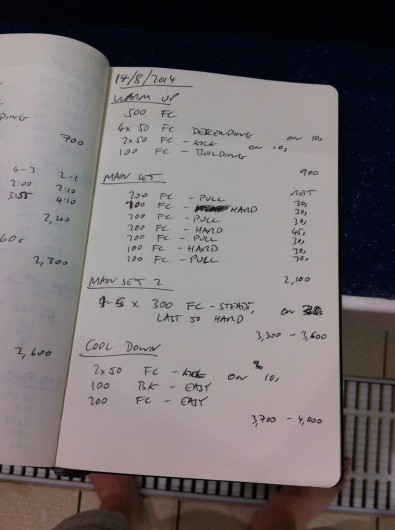 DING
700
4-3 2-1
2:00 2:10
3:55 4:10
2,200
60s
2,300
2,600
14/8/2014
WARM UP
500 FC
4x 50 FC DESCENDING ON 10s
2x 50 FC - KICK ON 10s
100 FC - BUILDING
900
MAIN SET
REST
200 FC - PULL 30s
100 FC - HARD 30s
200 FC - PULL 30s
200 FC - HARD 45s
200 FC - PULL 30s
100 FC - HARD 30s
200 FC - PULL 30s
2,100
MAIN SET 2
x 300 FC - STEADY, ON
LAST 50 HARD
3,300 - 3,600
COOL DOWN
2x50 FC - KICK ON 10s
100 BK - EASY
200 FC - EASY
3,700 - 4,000